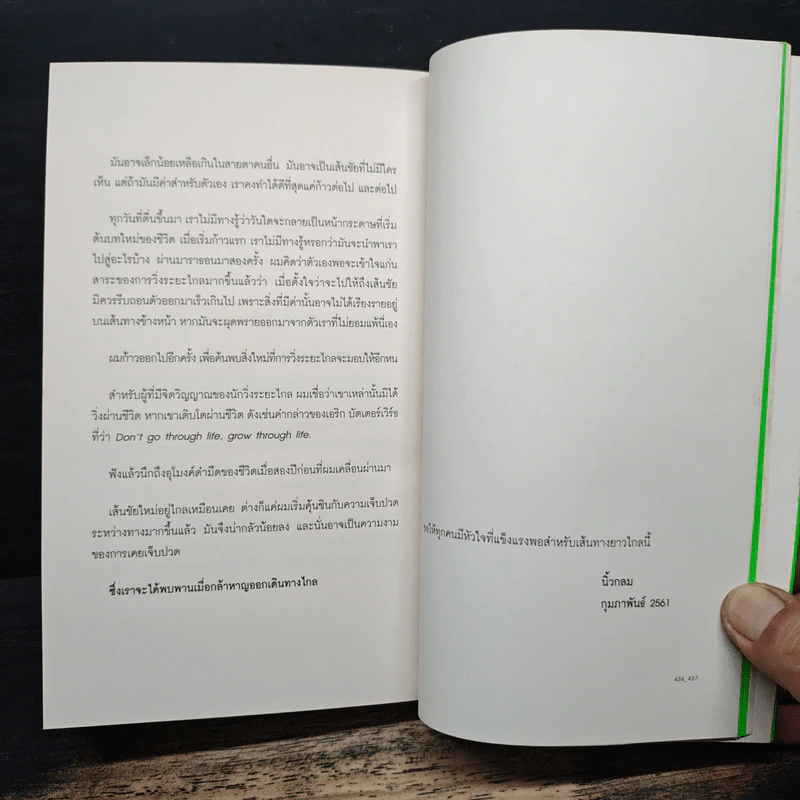 มันอาจเล็กน้อยเหลือเกินในสายตาคนอื่น มันอาจเป็นเส้นชัยที่ไม่มีใคร
เห็น แต่ถ้ามันมีค่าสำหรับตัวเอง เราคงทำได้ดีที่สุดแค่ก้าวต่อไป และต่อไป
ทุกวันที่ตื่นขึ้นมา เราไม่มีทางรู้ว่าวันใดจะกลายเป็นหน้ากระดาษที่เริ่ม
ต้นบทใหม่ของชีวิต เมื่อเริ่มก้าวแรก เราไม่มีทางรู้หรอกว่ามันจะนำพาเรา
ไปสู่อะไรบ้าง ผ่านมาราธอนมาสองครั้ง ผมคิดว่าตัวเองพอจะเข้าใจแก่น
สาระของการวิ่งระยะไกลมากขึ้นแล้วว่า เมื่อตั้งใจว่าจะไปให้ถึงเส้นชัย
มิควรรีบถอนตัวออกมาเร็วเกินไป เพราะสิ่งที่มีค่านั้นอาจไม่ได้เรียงรายอยู่
บนเส้นทางข้างหน้า หากมันจะผุดพรายออกมาจากตัวเราที่ไม่ยอมแพ้นี่เอง
ผมก้าวออกไปอีกครั้ง เพื่อค้นพบสิ่งใหม่ที่การวิ่งระยะไกลจะมอบให้อีกหน
สำหรับผู้ที่มีจิตวิญญาณของนักวิ่งระยะไกล ผมเชื่อว่าเขาเหล่านั้นมิได้
วิ่งผ่านชีวิต หากเขาเติบโตผ่านชีวิต ดังเช่นคำกล่าวของเอริก บัตเตอร์เวิร์ธ
ที่ว่า Don't go through life, grow through life.
ฟังแล้วนึกถึงอุโมงค์ดำมืดของชีวิตเมื่อสองปีก่อนที่ผมเคลื่อนผ่านมา
เส้นชัยใหม่อยู่ไกลเหมือนเคย ต่างก็แค่ผมเริ่มคุ้นชินกับความเจ็บปวด
ระหว่างทางมากขึ้นแล้ว มันจึงน่ากลัวน้อยลง และนั่นอาจเป็นความงาม
ของการเคยเจ็บปวด
ซึ่งเราจะได้พบพานเมื่อกล้าหาญออกเดินทางไกล
ขอให้ทุกคนมีหัวใจที่แข็งแรงพอสำหรับเส้นทางยาวไกลนี้
นิ้วกลม
กุมภาพันธ์ 2561
436_437